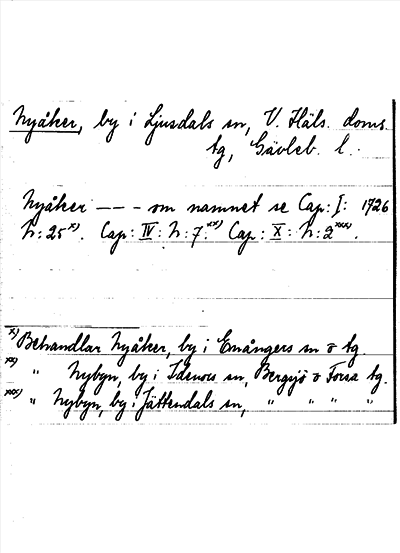 Nyåker, by i Ljusdals sn, V. Häls. doms.
tg, Gävleb. l.
Nyåker --- om namnet se Cap: I: 1726
N: 25 x). Cap: IV: N: 7. xx) Cap: X: N: 2 xxx).
x) Behandlar Nyåker, by i Enångers sn o tg.
xx) " Nybyn, by i Idenors sn, Bergsjö o Forsa tg.
xxx) " Nybyn, by i Jättendals sn, " " " "